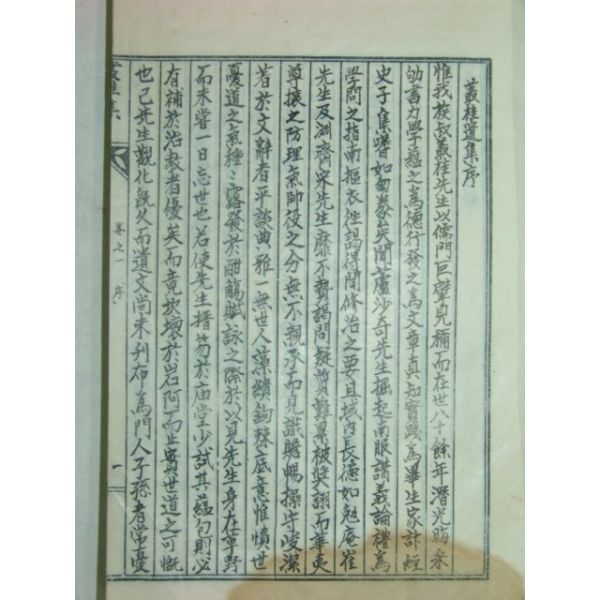 叢桂遺集序
惟我族叔叢桂先生以儒門巨擘見稱而在世八十餘年潛光晦采
劬書力學蘊之爲德行發之爲文章眞知實踐爲畢生家計經
史子集嗜如芻豢矣聞蘆沙奇先生掘起南服講義論禮爲
學問之指南摳衣往謁得聞修治之要且域內長德如勉庵崔
先生及淵齋宋先生靡不贄謁問疑質難累被奬詡而華夷
尊攘之防理氣帥役之分無不親承而見識贍暢操守峻潔
著於文辭者平談典雅一無世人藻繢鉤棘底意惟憤世
憂道之氣種種露發於酣觴賦詠之際於以見先生身在草野
而未嘗一日忘世也若使先生搢笏於庙堂少試其蘊包則必
有補於治敎者優矣而竟放壞於岩阿而止實世道之可慨
也已先生觀化旣久而遺文尚未刊布爲門人子孫者常憂
叢桂集
卷之一
序
一